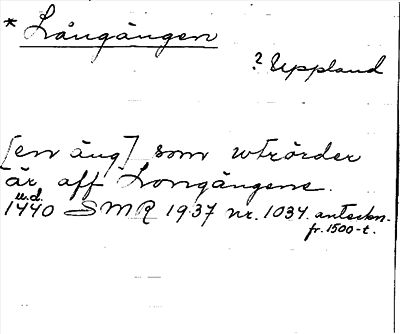 * Långängen
? Uppland
[en äng] som wtrörder
är aff Longängene.
u.d.
1440 SMR 1937 nr. 1034. anteckn.
fr. 1500-t.